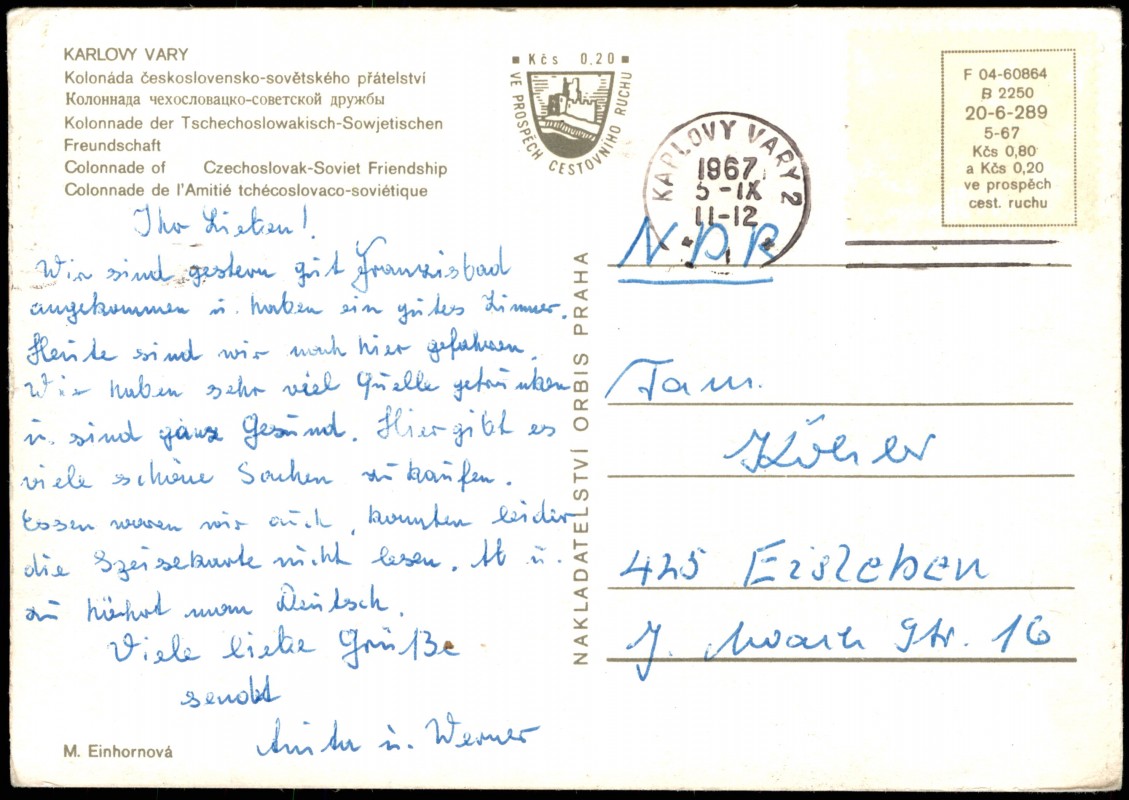 KARLOVY VARY
Kolonáda československo-sovětského přátelství
Колоннада чехословацко-советской дружбы
Kolonnade der Tschechoslowakisch-Sowjetischen
Freundschaft
Colonnade of Czechoslovak-Soviet Friendship
Colonnade de l'Amitié tchécoslovaco-soviétique
Kčs 0,20
VE PROSPĚCH CESTOVNÍHO RUCHU
KARLOVY VARY 2
1967
5-IX
11-12
F 04-60864
B 2250
20-6-289
5-67
Kčs 0,80
a Kčs 0,20
ve prospěch
cest. ruchu
Ihr Lieben!
Wir sind gestern gut Franzisbad
angekommen u. haben ein gutes Zimmer.
Heute sind wir nach hier gefahren.
Wir haben sehr viel Quelle getrunken
u. sind ganz Gesund. Hier gibt es
viele schöne Sachen zu kaufen.
Essen waren wir auch, konnten leider
die Speisekarte nicht lesen. Ab u.
zu hört man Deutsch.
Viele liebe Grüße
sendet
Anita u. Werner
M. Einhornová
NAKLADATELSTVÍ ORBIS PRAHA
NDR
Fam.
Köhler
425 Eisleben
J. Str. 16